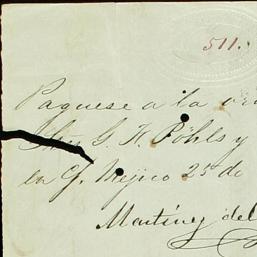 511.
Paguese a la
G. H. Pöhls y
en Méjico 25 de
Martínez del